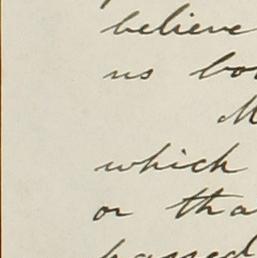 believe
us bo
M
which
or tha
passed